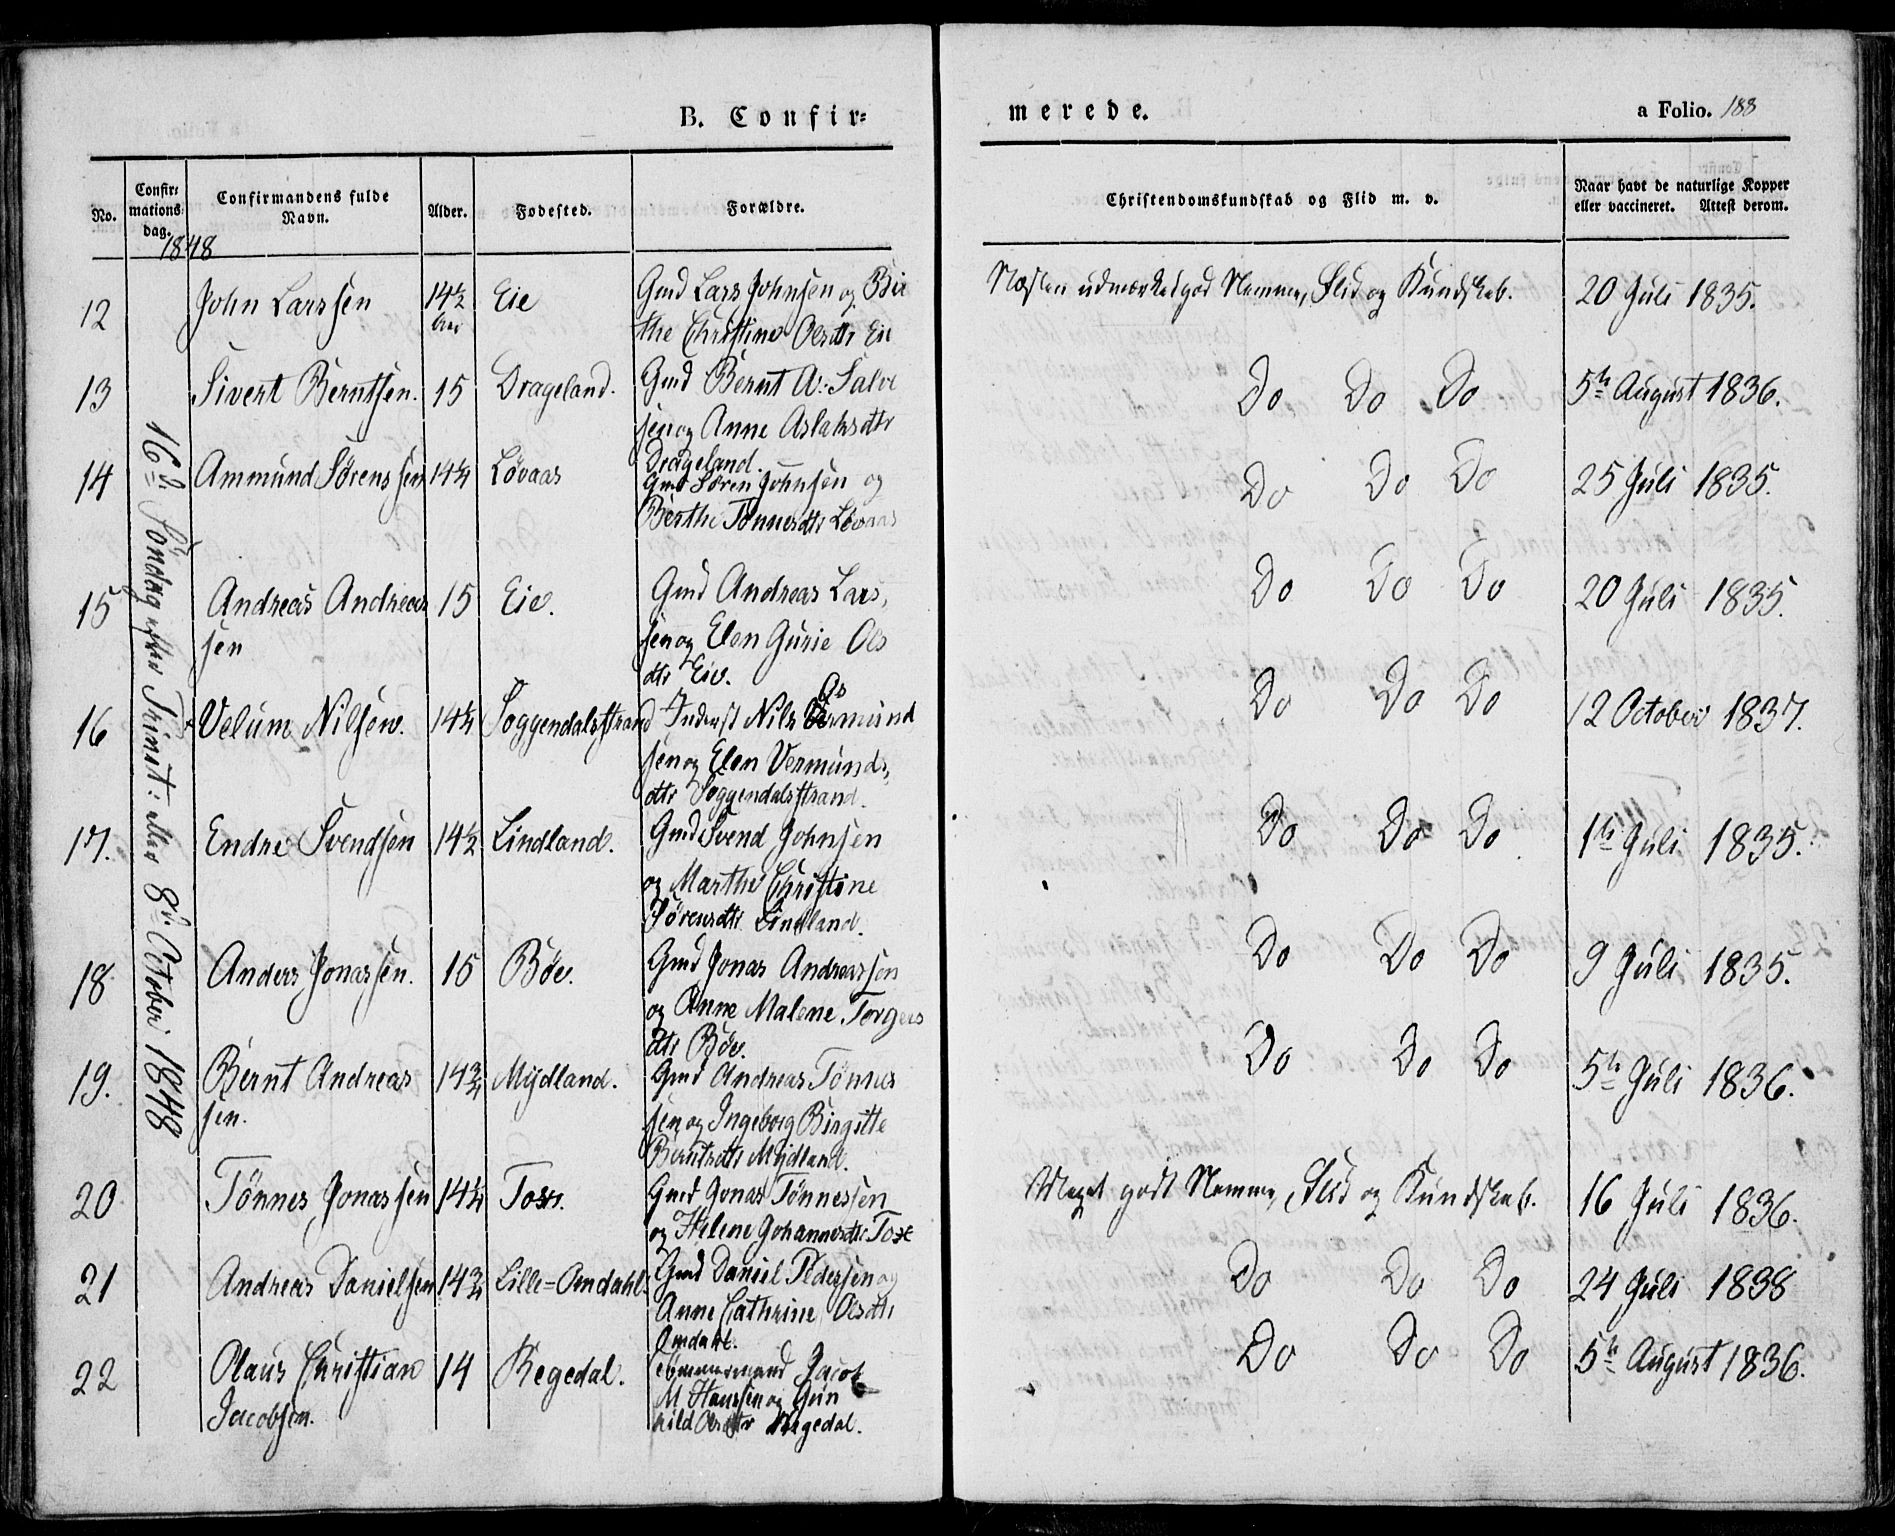 B. Confir=
merede.
a Folio. 183
No.
Confir=
mations
dag.
Confirmandens fulde
Navn.
Alder.
Fødested.
Forældre.
Christendomskundskab og Flid m. v.
Naar havt de naturlige Kopper
eller vaccineret. Attest derom.
1848
16de Søndag efter Trinit: eller 8de October 1848
12 John Larssen 14½ Eie Gmd Lars Johnsen og Bir
the Christine Olsdtr Eie
Næsten udmærket god Nemme, Flid og Kundskab. 20 Juli 1835.
13 Sivert Berntsen. 15 Drageland. Gmd Bernt A: Salve
sen og Anne Aslaksdtr
Drageland.
Do Do Do 5te August 1836.
14 Ammund Sørenssen 14¼ Løvaas Gmd Søren Johnsen og
Berthe Tønnesdtr Løvaas
Do Do Do 25 Juli 1835.
15 Andreas Andreas
sen 15 Eie. Gmd Andreas Lars,
sen og Elen Gurie Ols
dtr Eie.
Do Do Do 20 Juli 1835.
16 Velum Nilsen. 14¼ Soggendalsstrand Inderst Nils Osmund
sen og Elen Vermunds,
dtr Soggendalsstrand.
Do Do Do 12 October 1837.
17. Endre Svendsen 14½ Lindland. Gmd Svend Johnsen
og Marthe Christine
Sørensdtr Lindland.
Do Do Do 1te Juli 1835.
18. Anders Jonassen. 15 Bøe. Gmd Jonas Andreassen
og Anne Malene Torgers
dtr Bøe.
Do Do Do 9 Juli 1835.
19. Bernt Andreas
sen. 14¾ Mydland. Gmd Andreas Tønnes
sen og Ingeborg Birgitte
Berntsdtr Mydland.
Do Do Do 5te Juli 1836.
20 Tønnes Jonassen 14¼ Toxe. Gmd Jonas Tønnessen
og Helene Johannesdtr Toxe
Meget godt Nemme, Flid og Kundskab. 16 Juli 1836.
21 Andreas Danielsen 14¾ Lille=Omdahl Gmd Daniel Pedersen og
Anne Cathrine Olsdtr
Omdahl.
Do Do Do 24 Juli 1838
22 Olaus Christian
Jacobsen. 14 Regedal. Tømmermand Jacob
M Hanssen og Gun
hild Olsdtr Regedal.
Do Do Do 5te August 1836.